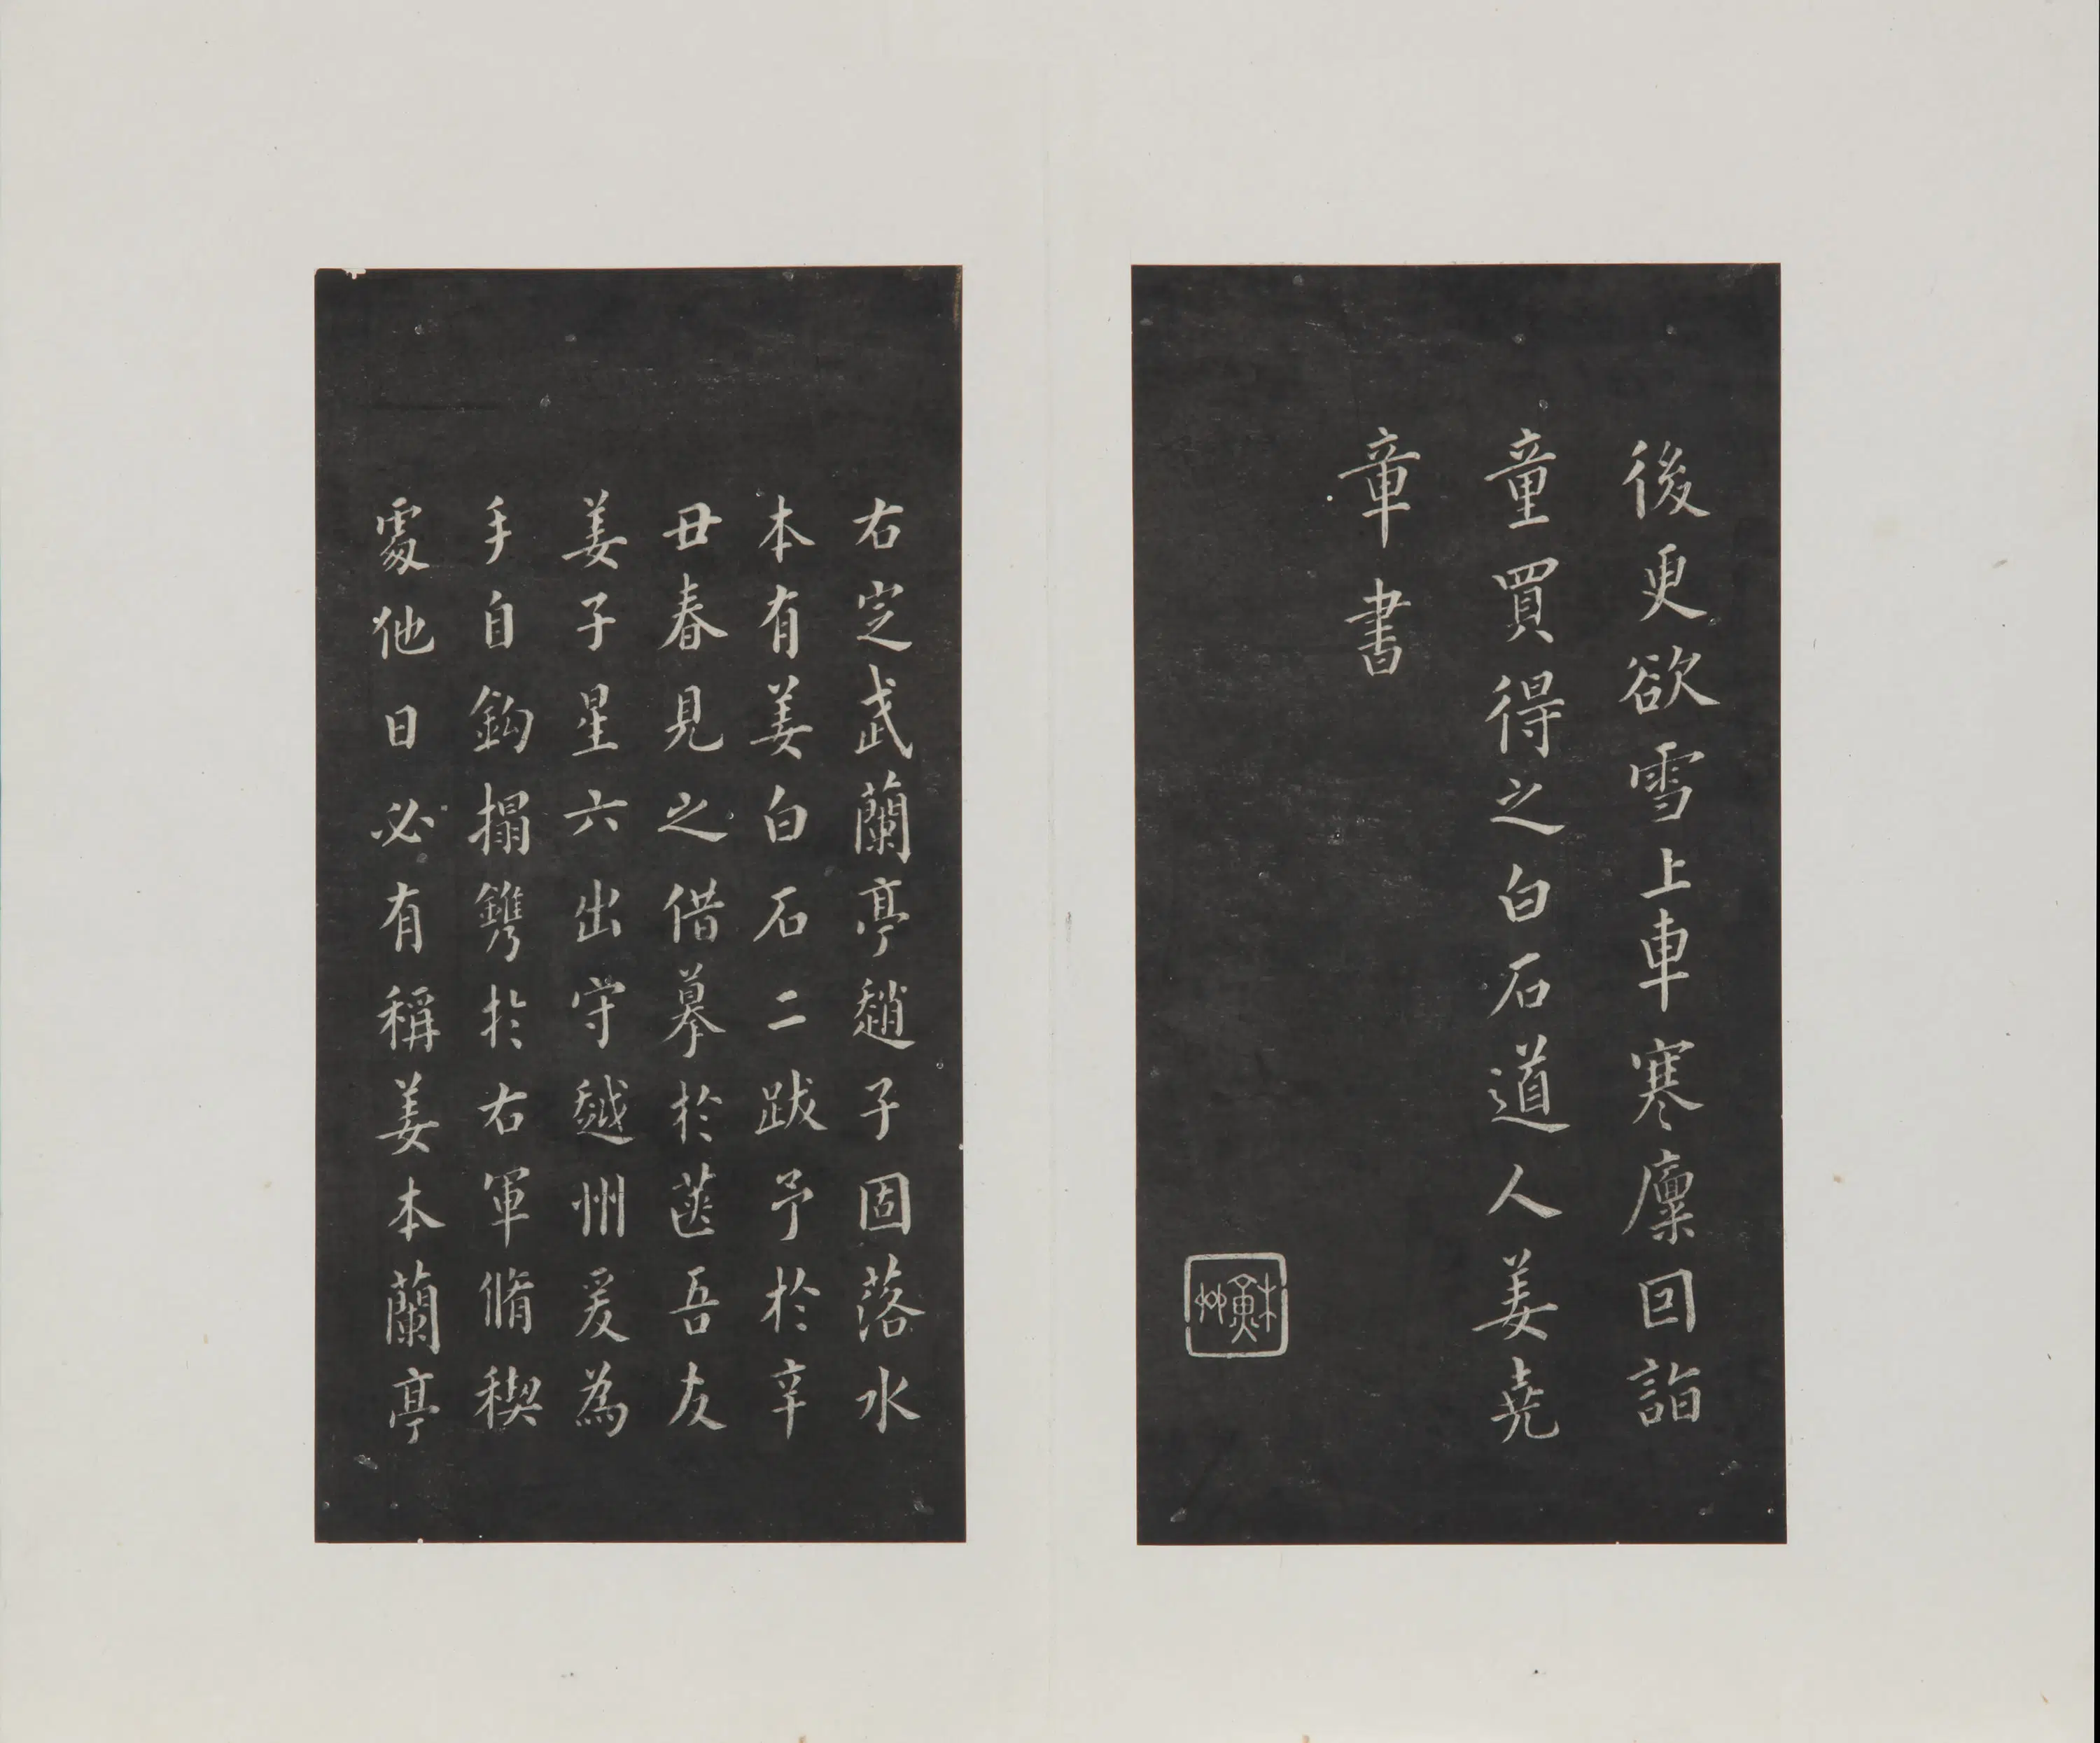 後更欲雪上車寒廩回詣
童買得之白石道人姜堯
章書
右定武蘭亭趙子固落水
本有姜白石二跋予於辛
丑春見之借摹於篋吾友
姜子星六出守越州爰為
手自鈎搨鐫於右軍脩稧
處他日必有稱姜本蘭亭